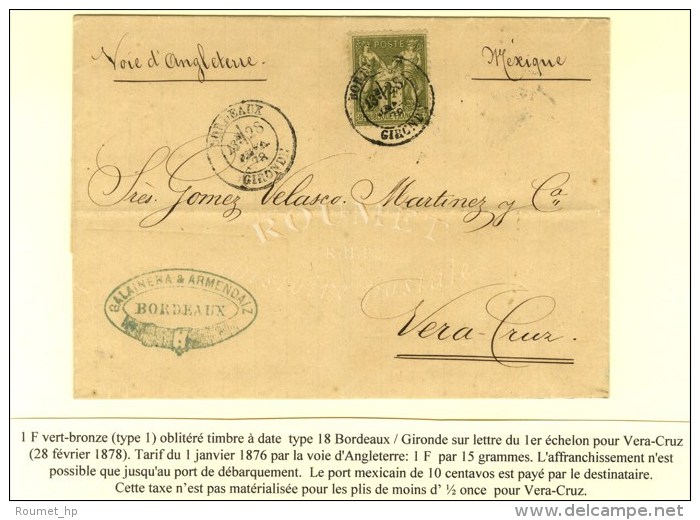 Voie d'Angleterre.
Mexique
POSTE
BORDEAUX
28
78
GIRONDE
BORDEAUX
28
78
GIRONDE
Srès. Gomez Velasco. Martinez y Ca.
ROUMET
GALAINENA & ARMENDAIZ
BORDEAUX
Vera-Cruz.
1 F vert-bronze (type 1) oblitéré timbre à date type 18 Bordeaux / Gironde sur lettre du 1er échelon pour Vera-Cruz
(28 février 1878). Tarif du 1 janvier 1876 par la voie d'Angleterre: 1 F par 15 grammes. L'affranchissement n'est
possible que jusqu'au port de débarquement. Le port mexicain de 10 centavos est payé par le destinataire.
Cette taxe n'est pas matérialisée pour les plis de moins d' ½ once pour Vera-Cruz.
Roumet_hp
delcampe.net